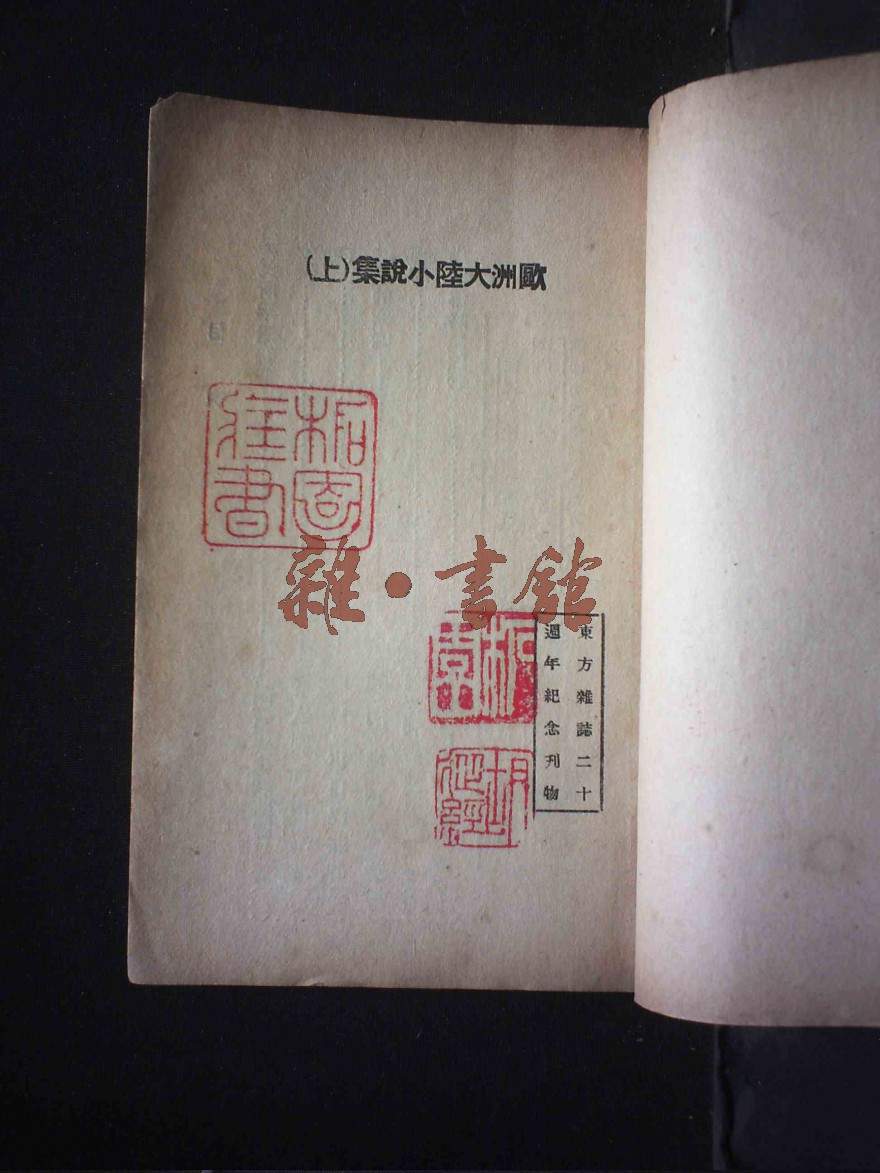 歐洲大陸小說集(上)
雜•書館
東方雜誌二十
週年紀念刊物